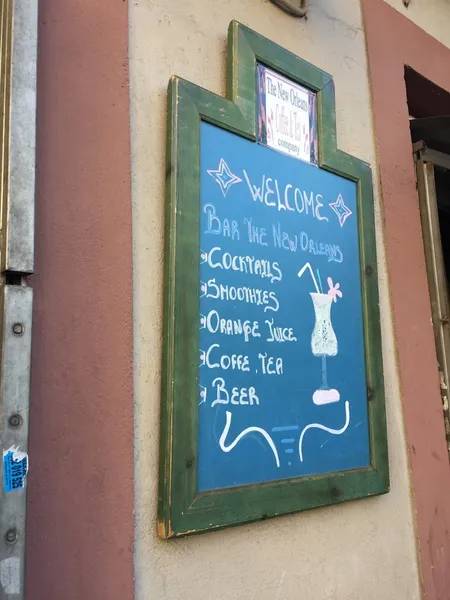 The New Orleans
Coffe & Tea
company
WELCOME
BAR THE NEW ORLEANS
COCKTAILS
SMOOTHIES
ORANGE JUICE
COFFE , TEA
BEER